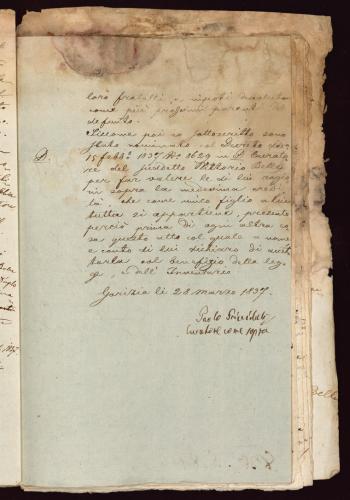 loro fratelli, e nipoti
come più prossimi parenti del
defonto.
Siccome poi io sottoscritto sono
stato nominato col Decreto
D. 15 febb.º 1837 Nº 1629 in Curato
re del suddetto Vittorio
per far valere le di lui ragio
ni sopra la medesima eredi
tà, che come unico figlio a lui
tutta si appartiene, presento
perciò prima di ogni altra co
sa questo atto col quale a nome
e conto di lui dichiaro di accet
tarla col beneficio della leg
ge, e dell' Inventario
Gorizia li 28 marzo 1837.
Paolo
Curatore come sopra